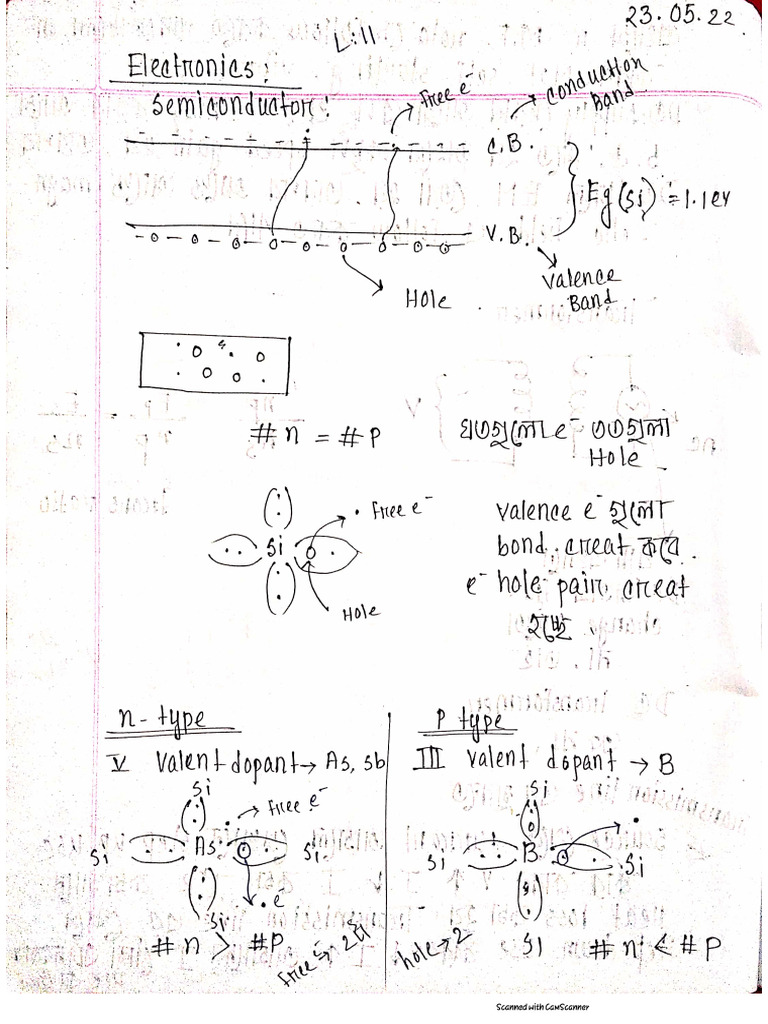 23.05.22
L:11
Electronics:
Semiconductor:
Free e⁻
conduction
Band
C.B.
Eg(Si) = 1.1ev
V.B.
Valence
Band
Hole
# n = # P
যতগুলো e⁻ ততগুলা
Hole
Free e⁻
Si
Hole
valence e⁻ গুলো
bond creat করে
e⁻ hole pair creat
হচ্ছে
n-type
V valent dopant → As, sb
Si
Free e⁻
Si As Si
.e
Si
# n > # P
P type
III valent dopant → B
Si
Si B Si
hole → 2
SI
# n < # P
Scanned with CamScanner